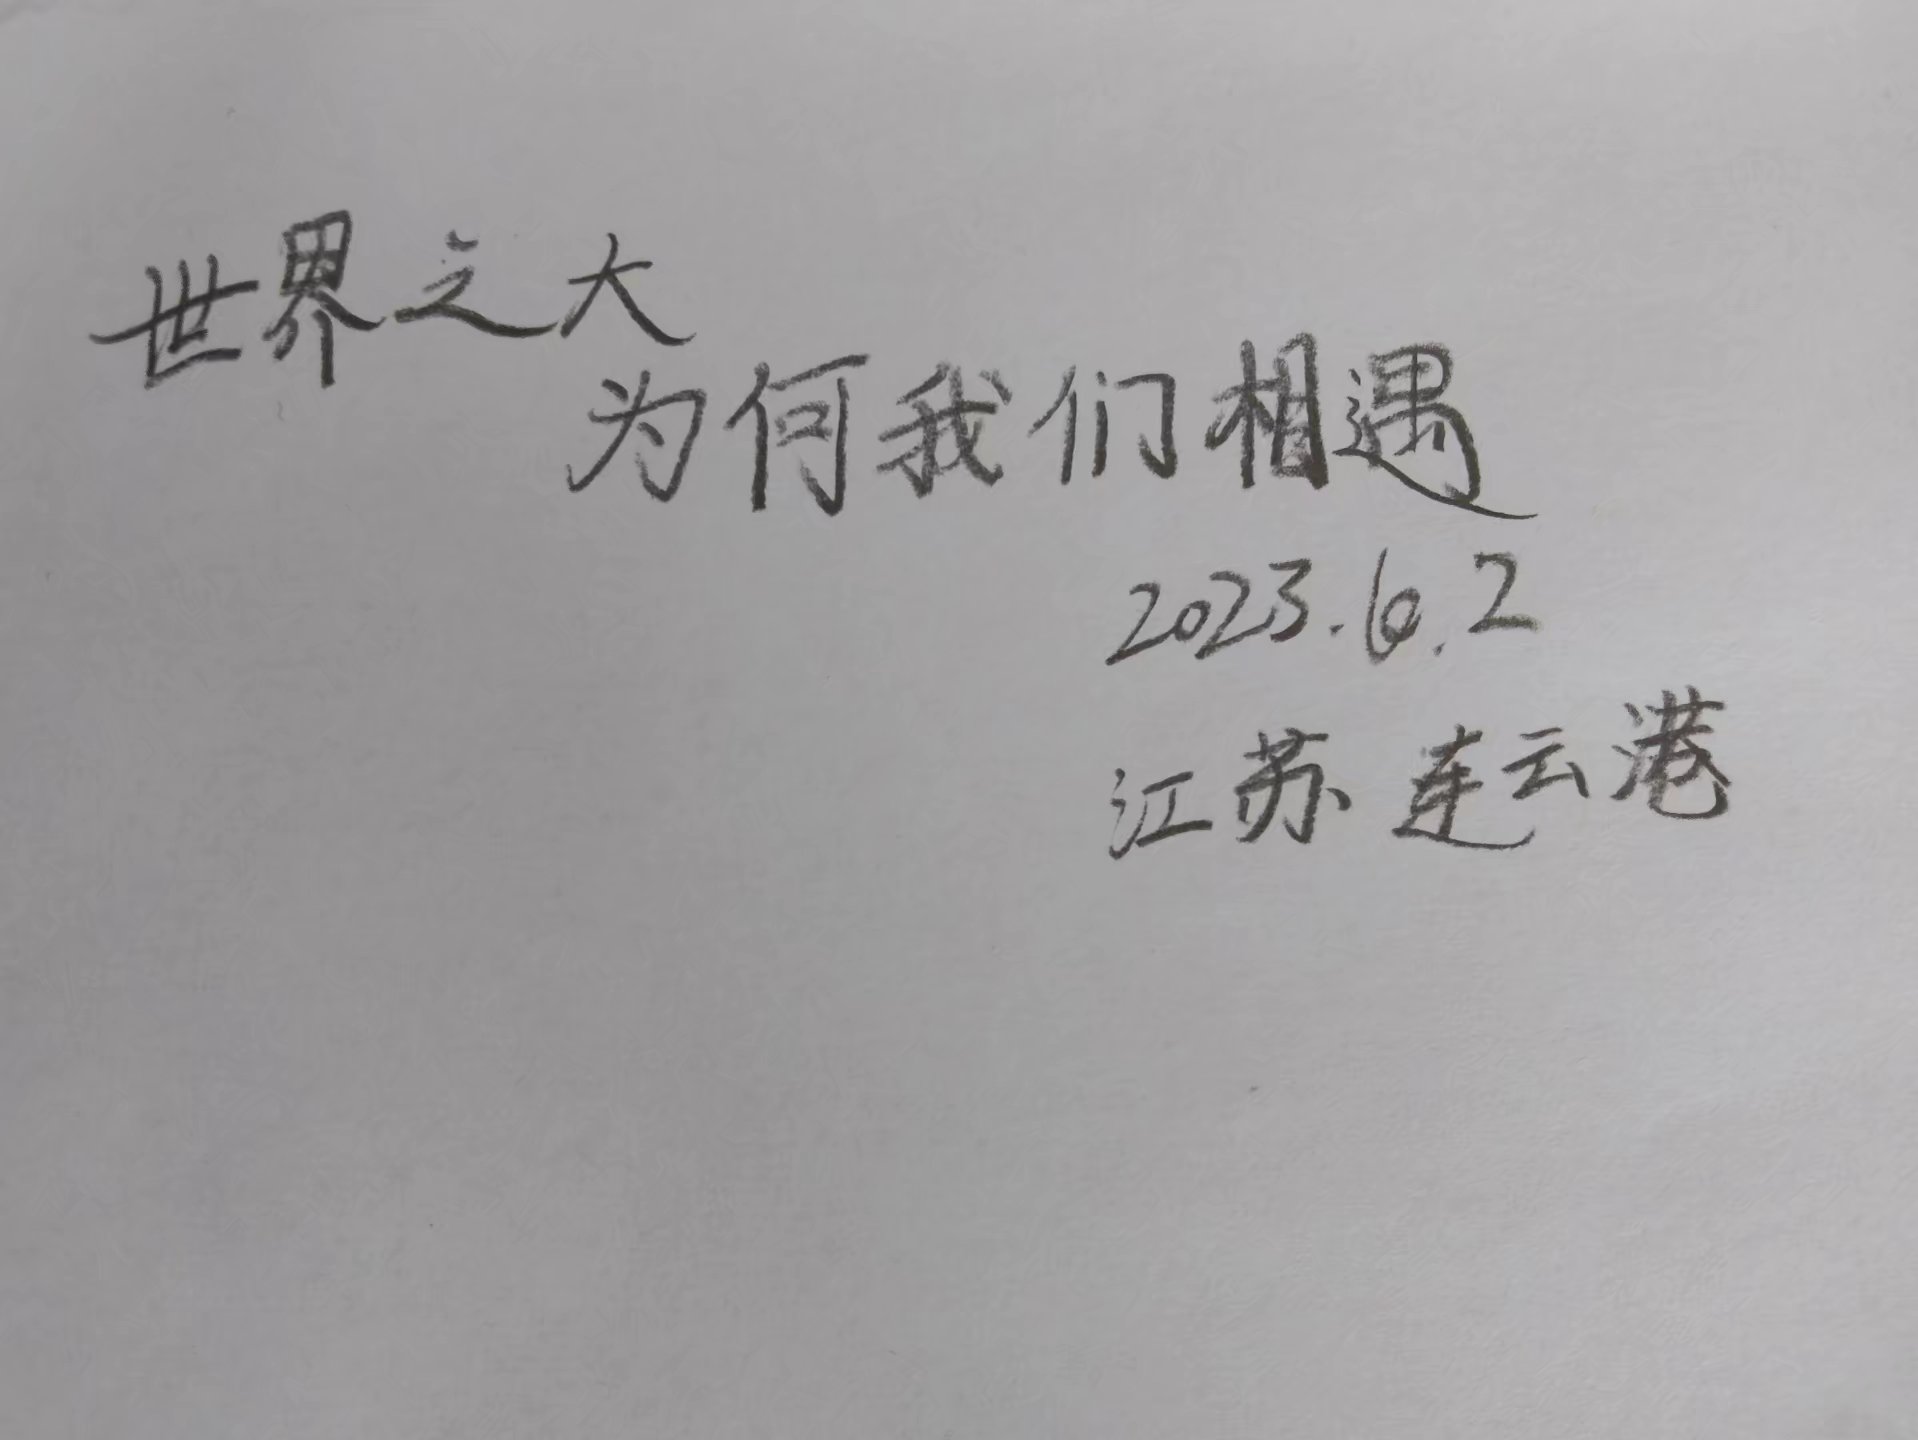 世界之大
为何我们相遇
2023.6.2
江苏 连云港